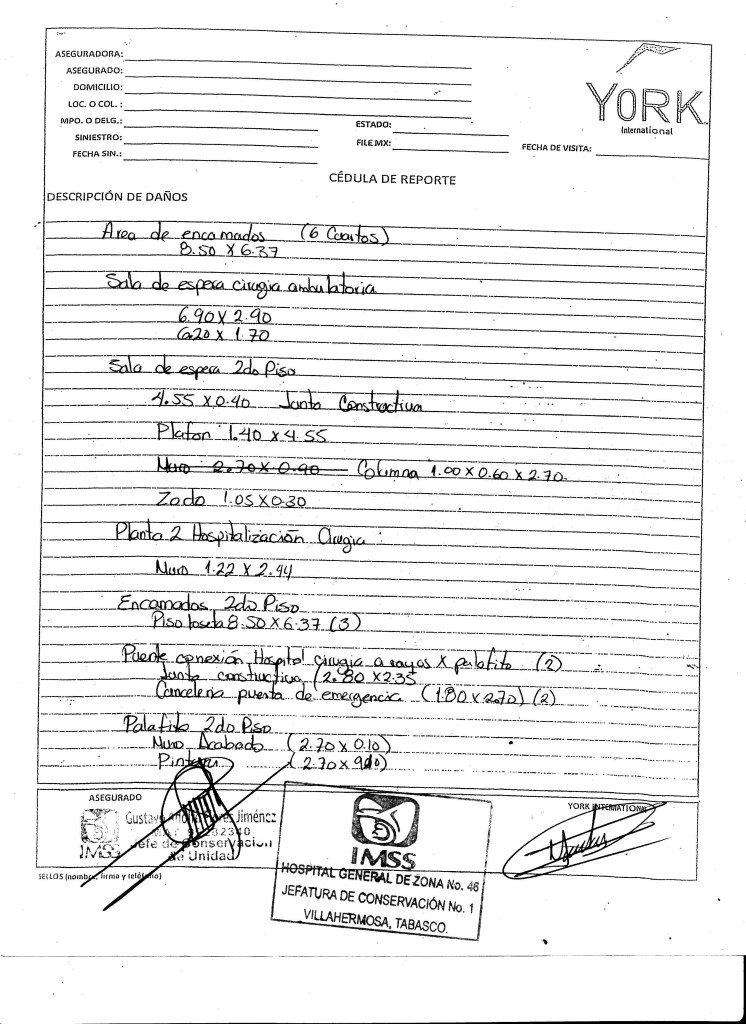 ASEGURADORA:
ASEGURADO:
DOMICILIO:
LOC. O COL. :
MPO. O DELG.:
ESTADO:
SINIESTRO:
FILE.MX:
FECHA DE VISITA:
FECHA SIN.:
YORK
International
CÉDULA DE REPORTE
DESCRIPCIÓN DE DAÑOS
Area de encamados (6 Cuartos)
8.50 X 6.37
Sala de espera cirugia ambulatoria
6.90 X 2.90
6.20 x 1.70
Sala de espera 2do Piso
4.55 X 0.40 Junta Constructiva
Plafon 1.40 x 4.55
Muro 2.70 X 0.90 Columna 1.00 x 0.60 x 2.70
Zoclo 1.05 X 0.30
Planta 2 Hospitalización Cirugia :
Muro 1.22 X 2.44
Encamados 2do Piso
Piso loseta 8.50 X 6.37 (3)
Puente conexión Hospital cirugia a rayos X palafito (2)
Junta constructiva (2.80 X 2.35
Canceleria puerta de emergencia (1.80 x 2.70) (2)
Palafito 2do Piso
Muro Acabado (2.70 x 0.10)
Pintura (2.70 x
ASEGURADO
YORK INTERNATIONAL
Gustavo Jiménez
Jefe de Conservación
de Unidad
IMSS
SELLOS (nombre, firma y teléfono)
IMSS
HOSPITAL GENERAL DE ZONA No. 46
JEFATURA DE CONSERVACIÓN No. 1
VILLAHERMOSA, TABASCO.